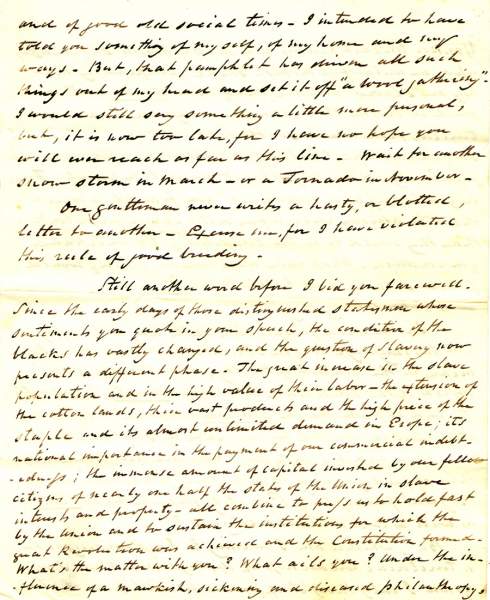 and of good old social times - I intended to have
told you something of myself, of my home and my
ways - But, that pamphlet has driven all such
things out of my head and set it off "a wool gathering" -
I would still say something a little more personal,
but, it is now too late, for I have no hope you
will ever reach as far as this line - Wait for another
snow storm in March - or a Tornado in November -
One gentleman never writes a hasty, or blotted,
letter to another - Excuse me, for I have violated
this rule of good breeding -
Still another word before I bid you farewell -
Since the early days of those distinguished statesmen whose
sentiments you quote in your speech, the condition of the
blacks has vastly changed, and the question of slavery now
presents a different phase - The great increase in the slave
population and in the high value of their labor - the extension of
the cotton lands, their vast products and the high price of the
staple and its almost unlimited demand in Europe; its
national importance in the payment of our commercial indebt-
-edness; the immense amount of capital invested by our fellow
citizens of nearly one half the states of the Union in slave
interests and property - all combine to press us to hold fast
by the Union and to sustain the institutions for which the
great Revolution was achieved and the Constitution formed -
What's the matter with you? What ails you? Under the in-
-fluence of a mawkish, sickening and diseased philanthropy,